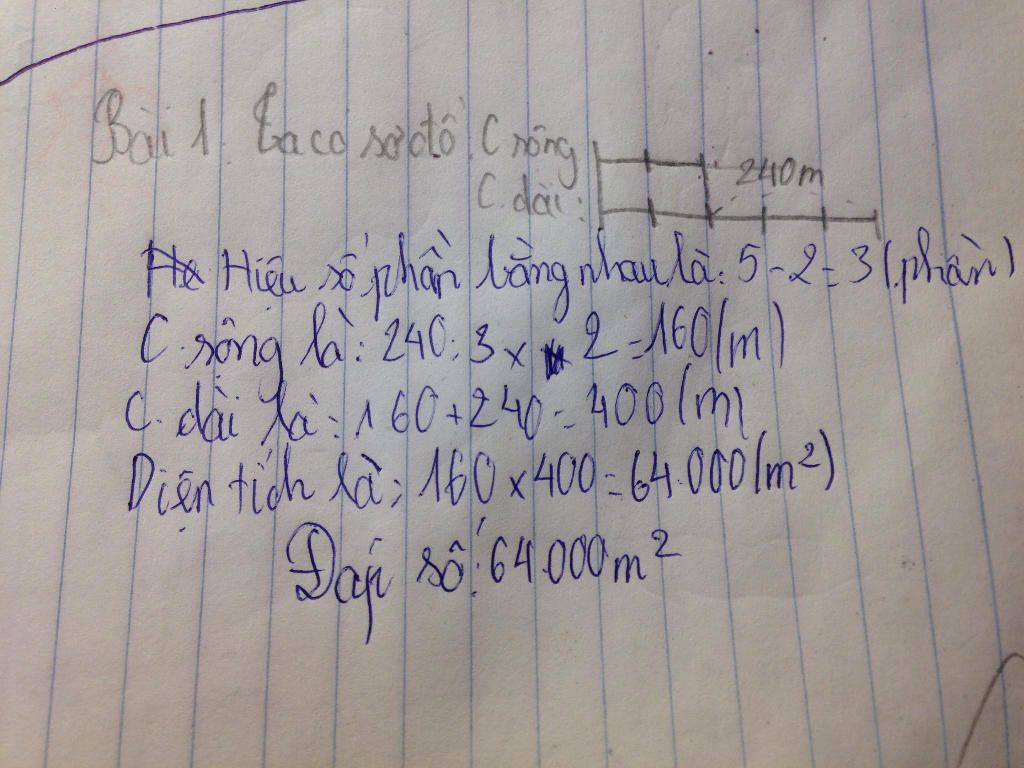 Bài 1. Ta có sơ đồ C rộng
240m
C. dài:
Hiệu số phần bằng nhau là: 5 - 2 = 3 (phần)
C. rộng là: 240 : 3 x 2 = 160 (m)
C. dài là: 160 + 240 = 400 (m)
Diện tích là: 160 x 400 = 64.000 (m²)
Đáp số: 64.000m²